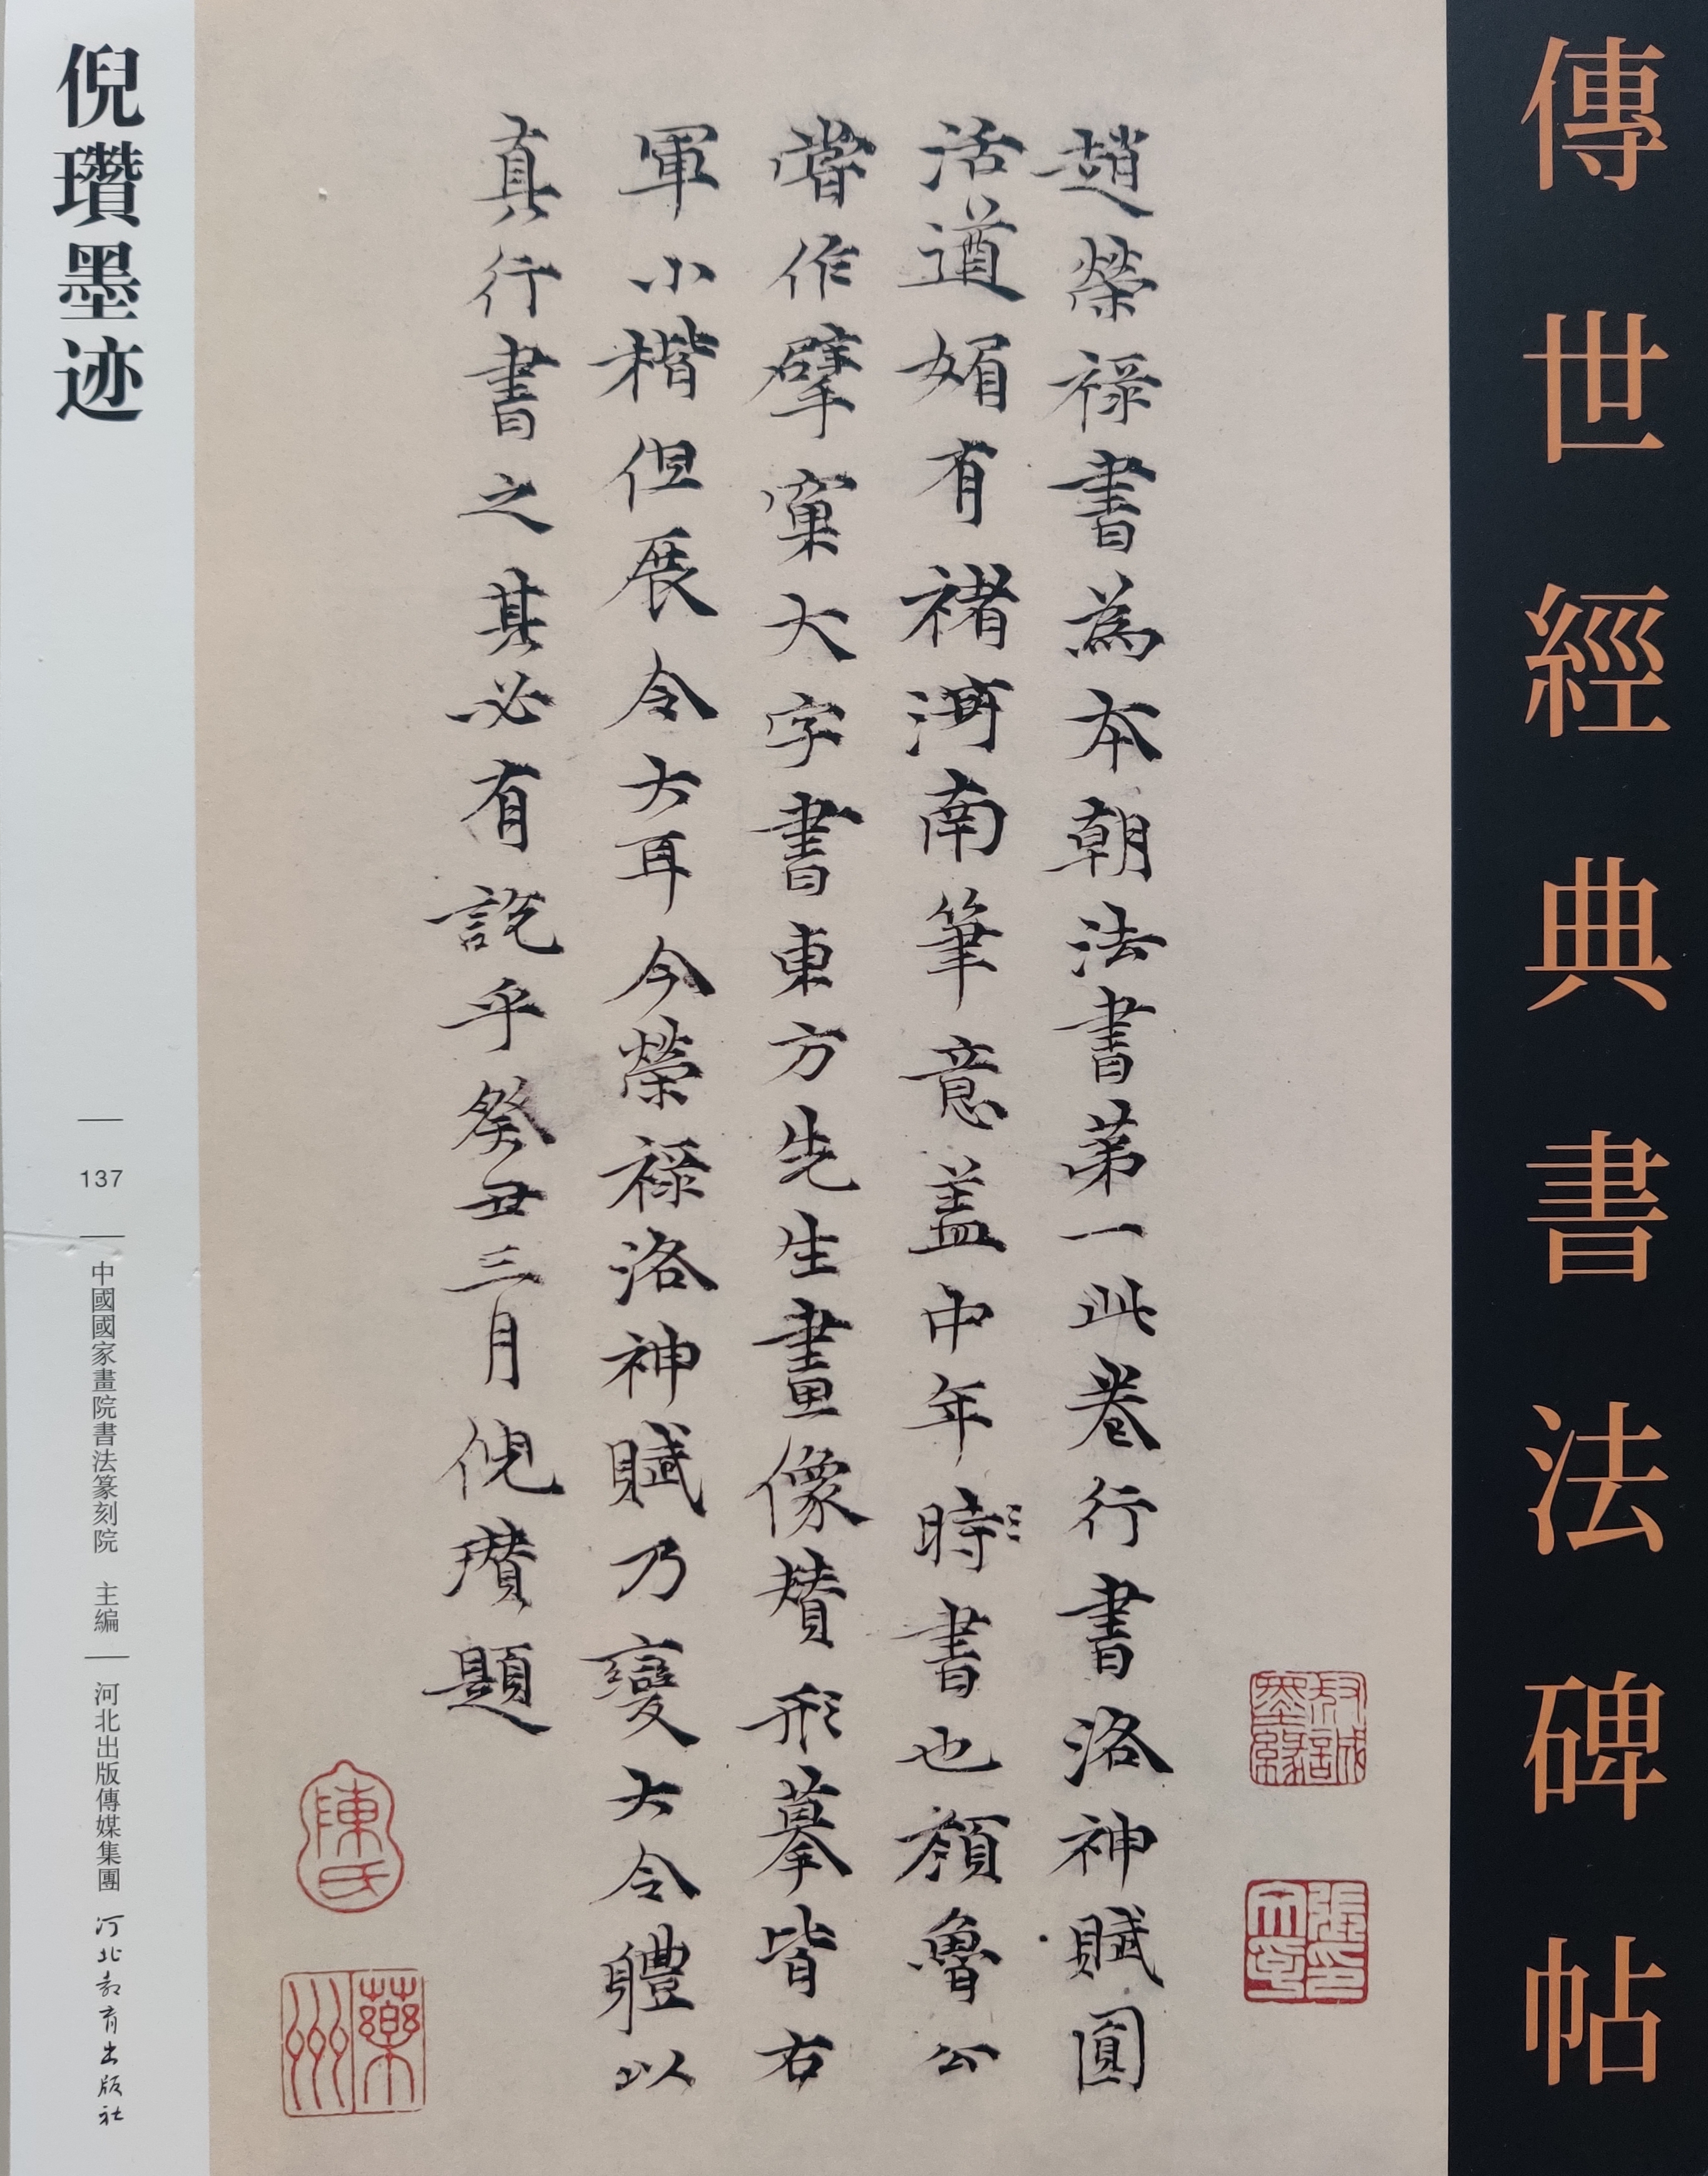 傳世經典書法碑帖
趙榮祿書為本朝法書第一此卷行書洛神賦圓
活遒媚有褚河南筆意蓋中年時書也顏魯公
嘗作擘窠大字書東方先生畫像贊形摹皆右
軍小楷但展令大耳今榮祿洛神賦乃變大令體以
真行書之其必有說乎癸丑三月倪瓚題
陳氏
倪瓚墨迹
137
中國國家畫院書法篆刻院 主編
河北出版傳媒集團 河北教育出版社